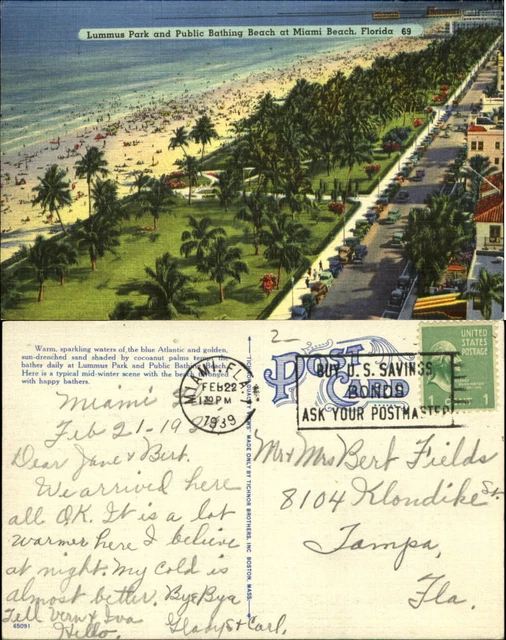 Lummus Park and Public Bathing Beach at Miami Beach, Florida 69
Warm, sparkling waters of the blue Atlantic and golden,
sun-drenched sand shaded by cocoanut palms tempt the
bather daily at Lummus Park and Public Bathing Beach.
Here is a typical mid-winter scene with the beach thronged
with happy bathers.
Miami
Feb 21-19
Dear Jane & Bert.
We arrived here
all O.K. It is a lot
warmer here I believe
at night. My cold is
almost better. Bye Bye
Tell Vern & Iva
Hello. Gladys & Carl.
65091
MIAMI, FLA.
FEB 22
12 PM
1939
MADE ONLY BY TICHNOR BROTHERS, INC. BOSTON, MASS.
2-
POST
CARD
BUY U.S. SAVINGS
BONDS
ASK YOUR POSTMASTER
UNITED
STATES
POSTAGE
1 1
Mr & Mrs Bert Fields
8104 Klondike St.
Tampa,
Fla.